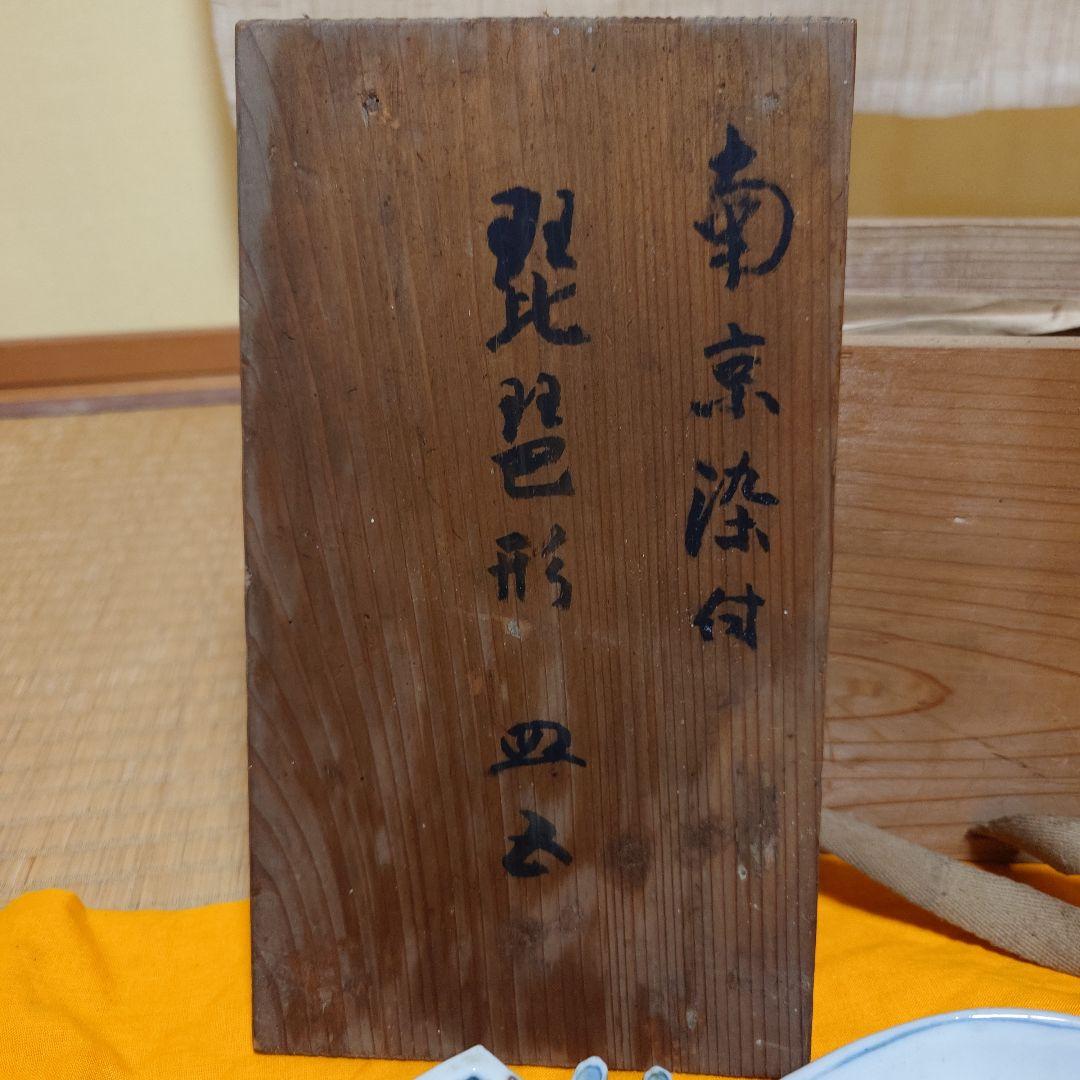 南京染付
琵琶形 皿五